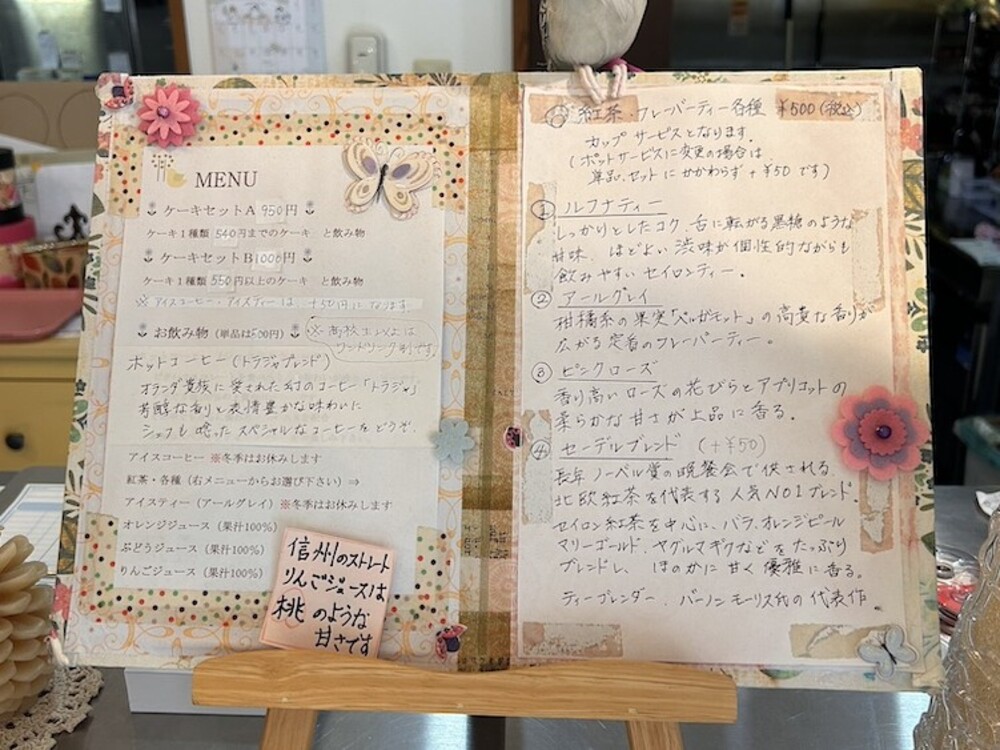 MENU
ケーキセットA 950円
ケーキ1種類 540円までのケーキ と飲み物
ケーキセットB 1000円
ケーキ1種類 550円以上のケーキ と飲み物
※アイスコーヒー・アイスティーは +50円になります
お飲み物 (単品は500円)
※高校生以上は
ワンドリンク制です
ホットコーヒー(トラジャブレンド)
オランダ貴族に愛された幻のコーヒー「トラジャ」
芳醇な香りと表情豊かな味わいに
シェフも唸ったスペシャルなコーヒーをどうぞ。
アイスコーヒー ※冬季はお休みします
紅茶・各種 (右メニューからお選び下さい) ⇒
アイスティー (アールグレイ) ※冬季はお休みします
オレンジジュース (果汁100%)
ぶどうジュース (果汁100%)
りんごジュース (果汁100%)
信州のストレート
りんごジュースは
桃のような
甘さです
紅茶・フレーバーティー各種 ¥500(税込)
カップサービスとなります。
(ポットサービスに変更の場合は
単品、セットにかかわらず +¥50です)
① ルフナティー
しっかりとしたコク、舌に転がる黒糖のような
甘味、ほどよい渋味が個性的ながらも
飲みやすいセイロンティー。
② アールグレイ
柑橘系の果実「ベルガモット」の高貴な香りが
広がる定番のフレーバーティー。
③ ピンクローズ
香り高いローズの花びらとアプリコットの
柔らかな甘さが上品に香る。
④ セーデルブレンド (+¥50)
長年ノーベル賞の晩餐会で供される
北欧紅茶を代表する人気NO1ブレンド。
セイロン紅茶を中心に、バラ、オレンジピール
マリーゴールド、ヤグルマギクなどをたっぷり
ブレンドし、ほのかに甘く優雅に香る。
ティーブレンダー、バーノンモーリス氏の代表作。